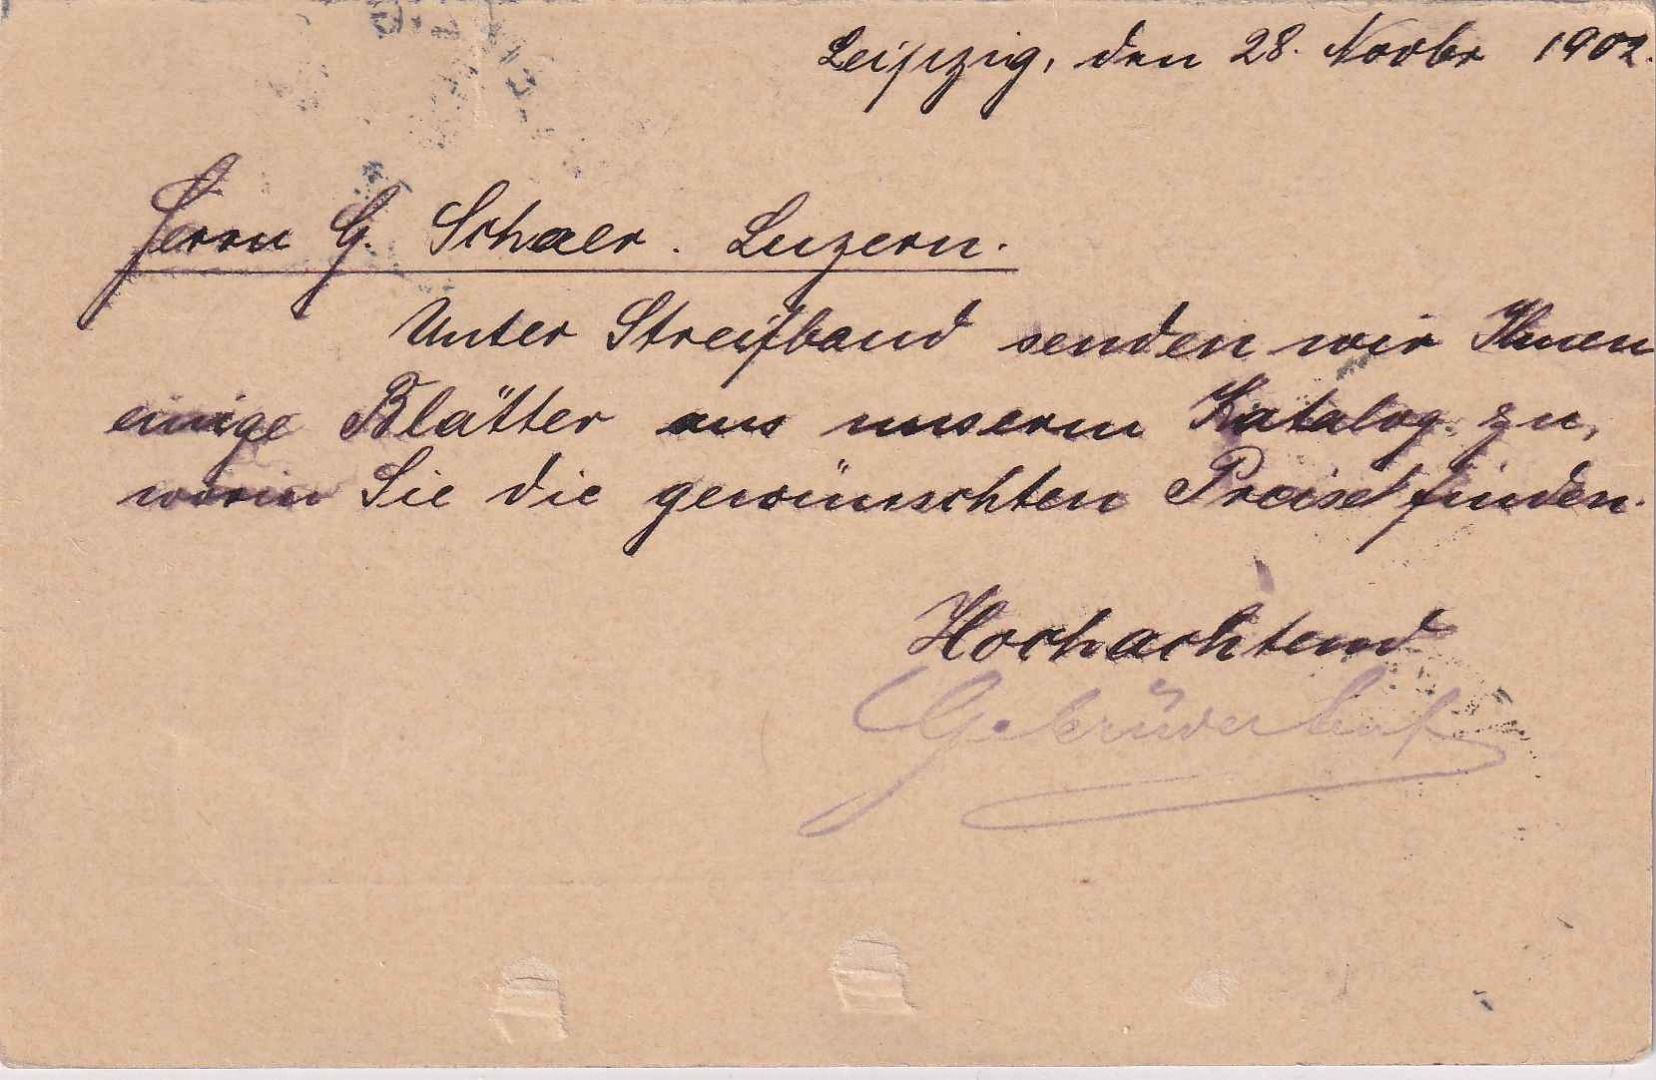 Leipzig, den 28. Novbr 1902.
Herrn G. Schaer. Luzern.
Unter Streifband senden wir Ihnen
einige Blätter aus unserm Katalog zu,
worin Sie die gewünschten Preise finden.
Hochachtend
Gebrüder